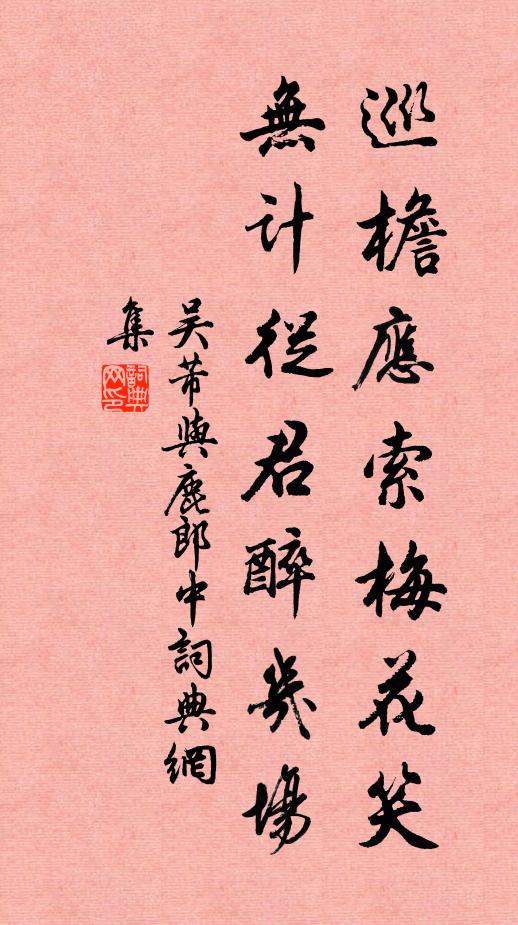 巡檐應索梅花笑
無計從君醉幾場
吳芾與鹿郎中詞典網
集
詞典网印